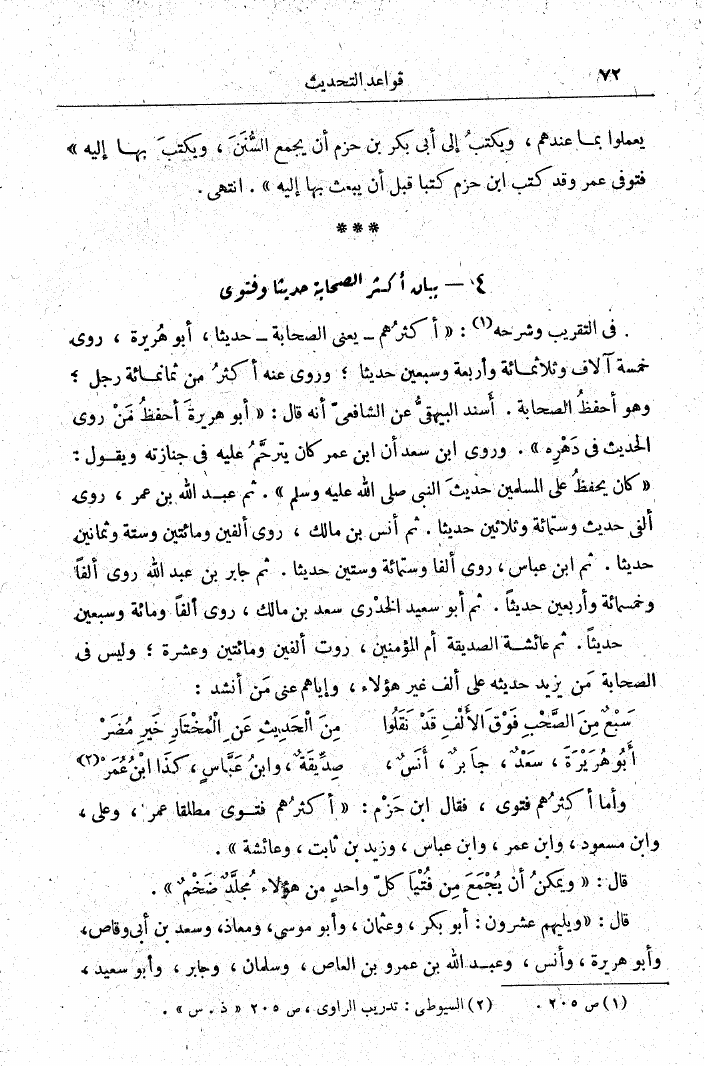 ٧٢ قواعد التحديث
يعملوا بمـا عندهم ، ويكتبُ إلى أبى بكر بن حزم أن يجمع السُّنَنَ ، ويكتبَ بهـا إليه »
فتوفى عمر وقد كتب ابن حزم كتبا قبل أن يبعث بها إليه » . انتهى .
***
٤ — بيان أكثر الصحابة حديثا وفتوى
. فى التقريب وشرحه (١) : « أكثرُهم ـ يعنى الصحابة ـ حديثا ، أبو هُريرة ، روى
خمسة آلاف وثلاثمـائة وأربعة وسبعين حديثا ؛ وروى عنه أكثرُ من ثمانمـائة رجل ؛
وهو أحفظُ الصحابة . أسند البيهقىُّ عن الشافعىّ أنه قال : « أبو هريرةَ أحفظُ مَنْ روى
الحديث فى دَهْرِه » . وروى ابن سعد أن ابن عمر كان يترحَّمُ عليه فى جنازته ويقـول :
« كان يحفظُ على المسلمين حديثَ النبى صلى الله عليه وسلم » . ثم عبـد الله بن عمر ، روى
ألفى حديث وستمائة وثلاثين حديثا . ثم أنس بن مالك ، روى ألفين ومائتين وستة وثمانين
حديثا . ثم ابن عباس ، روى ألفا وستمائة وستين حديثا . ثم جابر بن عبد الله روى ألفاً
وخمسمائة وأربعين حديثاً . ثم أبو سعيد الخدْرى سعد بن مالك ، روى ألفاً ومائة وسبعين
حديثاً . ثم عائشـة الصديقة أم المؤمنين ، روت ألفين ومائتين وعشرة ؛ وليس فى
الصحابة مَن يزيد حديثه على ألف غير هؤلاء ، وإياهم عنى مَن أنشد :
سَبْعٌ مِنَ الصَّحْبِ فَوْقَ الأَلْفِ قَدْ نَقَلُوا مِنَ الْحَدِيثِ عَنِ الْمُخْتَارِ خَيرِ مُضَرْ
أَبُو هُرَيْرَةَ ، سَعْدٌ ، جابرٌ ، أَنَسٌ ، صِدِّيقَةٌ ، وابنُ عَبَّاسٍ ، كَذَا ابْنُ عُمَرْ (٢)
وأما أكثرُهم فتوى ، فقال ابن حَزْم : « أكثرُهم فتـوى مطلقا عمر ، وعلى ،
وابن مسعود ، وابن عمر ، وابن عباس ، وزيد بن ثابت ، وعائشة » .
قال : « ويمكنُ أن يُجْمَعَ مِن فُتْيَا كلّ واحدٍ من هؤلاء مُجلَّدٌ ضَخْمٌ » .
قال : «ويليهم عشرون : أبو بكر ، وعثمان ، وأبو موسى، ومعاذ، وسعد بن أبى وقاص،
وأبو هريرة ، وأنس ، وعبـد الله بن عمرو بن العاص ، وسلمان ، وجابر ، وأبو سعيد ،
(١) ص ٢٠٥ . (٢) السيوطى : تدريب الراوى ، ص ٢٠٥ « ذ . س » .